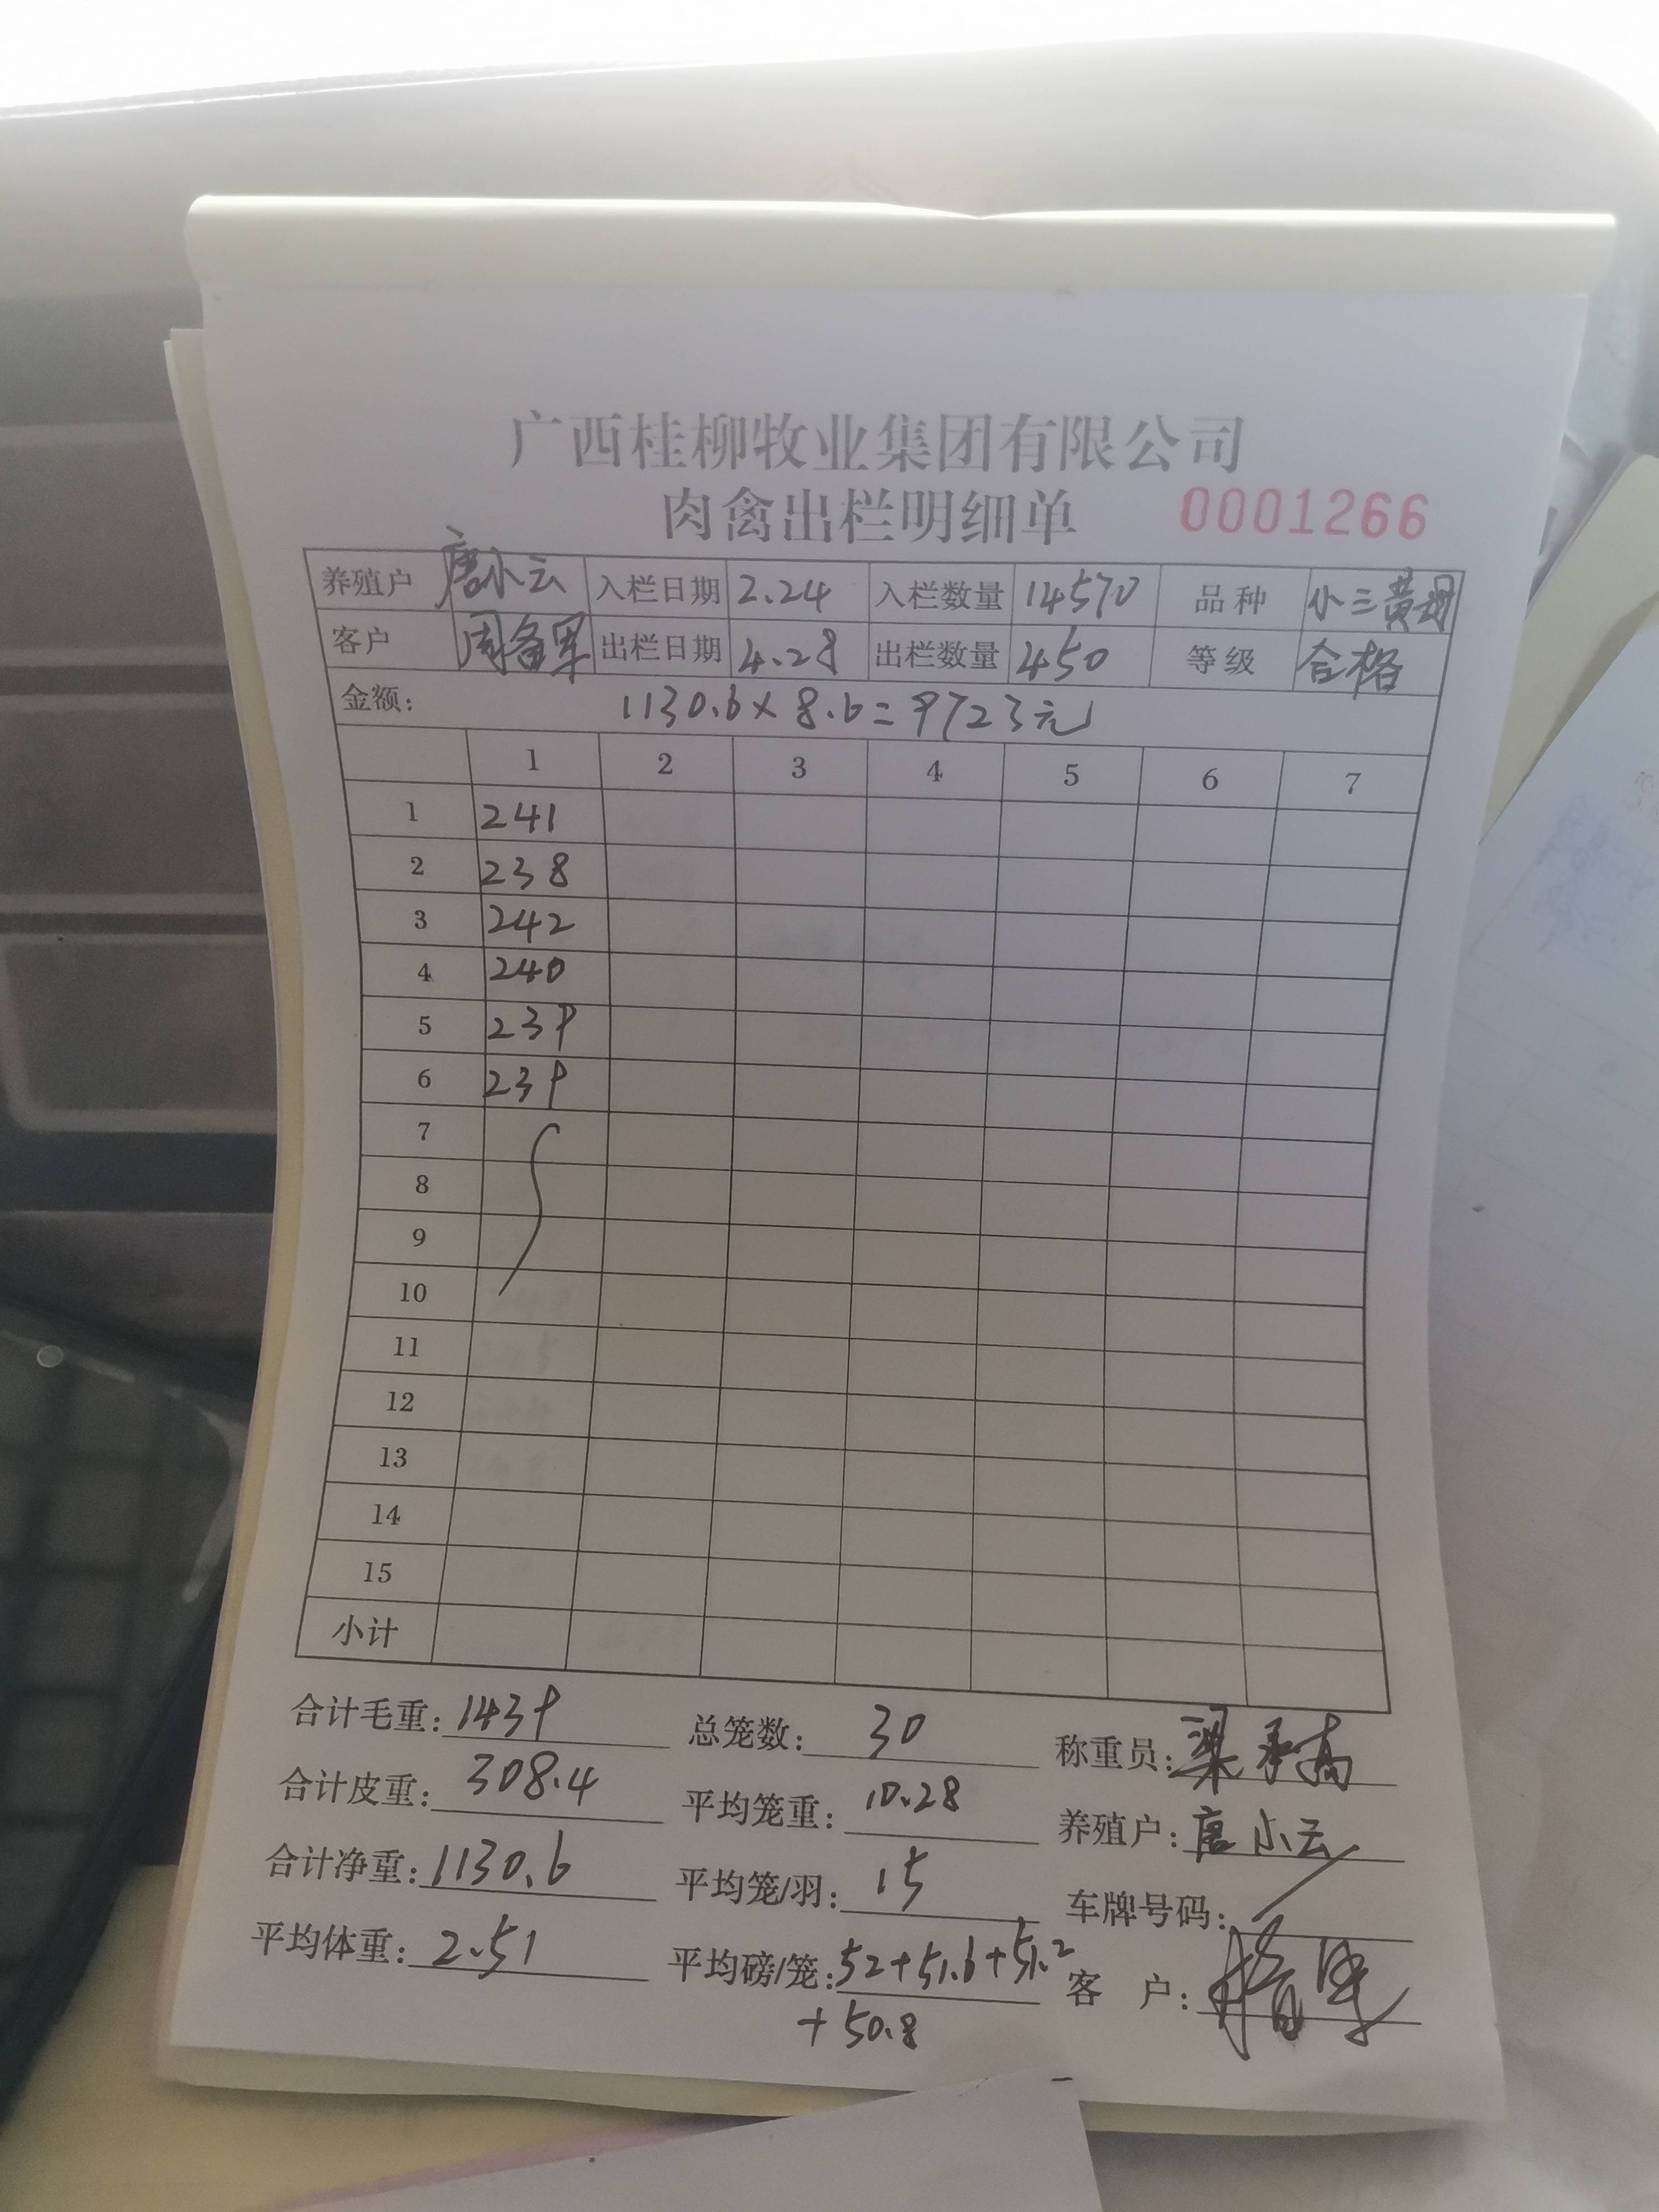 广西桂柳牧业集团有限公司
肉禽出栏明细单 0001266
养殖户 唐小云 入栏日期 2.24 入栏数量 14570 品种 小三黄母
客户 周备军 出栏日期 4.28 出栏数量 450 等级 合格
金额: 1130.6×8.6=9723元
1 2 3 4 5 6 7
1 241
2 238
3 242
4 240
5 239
6 239
7
8
9
10
11
12
13
14
15
小计
合计毛重: 1439 总笼数: 30 称重员: 梁
合计皮重: 308.4 平均笼重: 10.28 养殖户: 唐小云
合计净重: 1130.6 平均笼/羽: 15 车牌号码:
平均体重: 2.51 平均磅/笼: 52+51.6+51.2 客 户:
+50.8